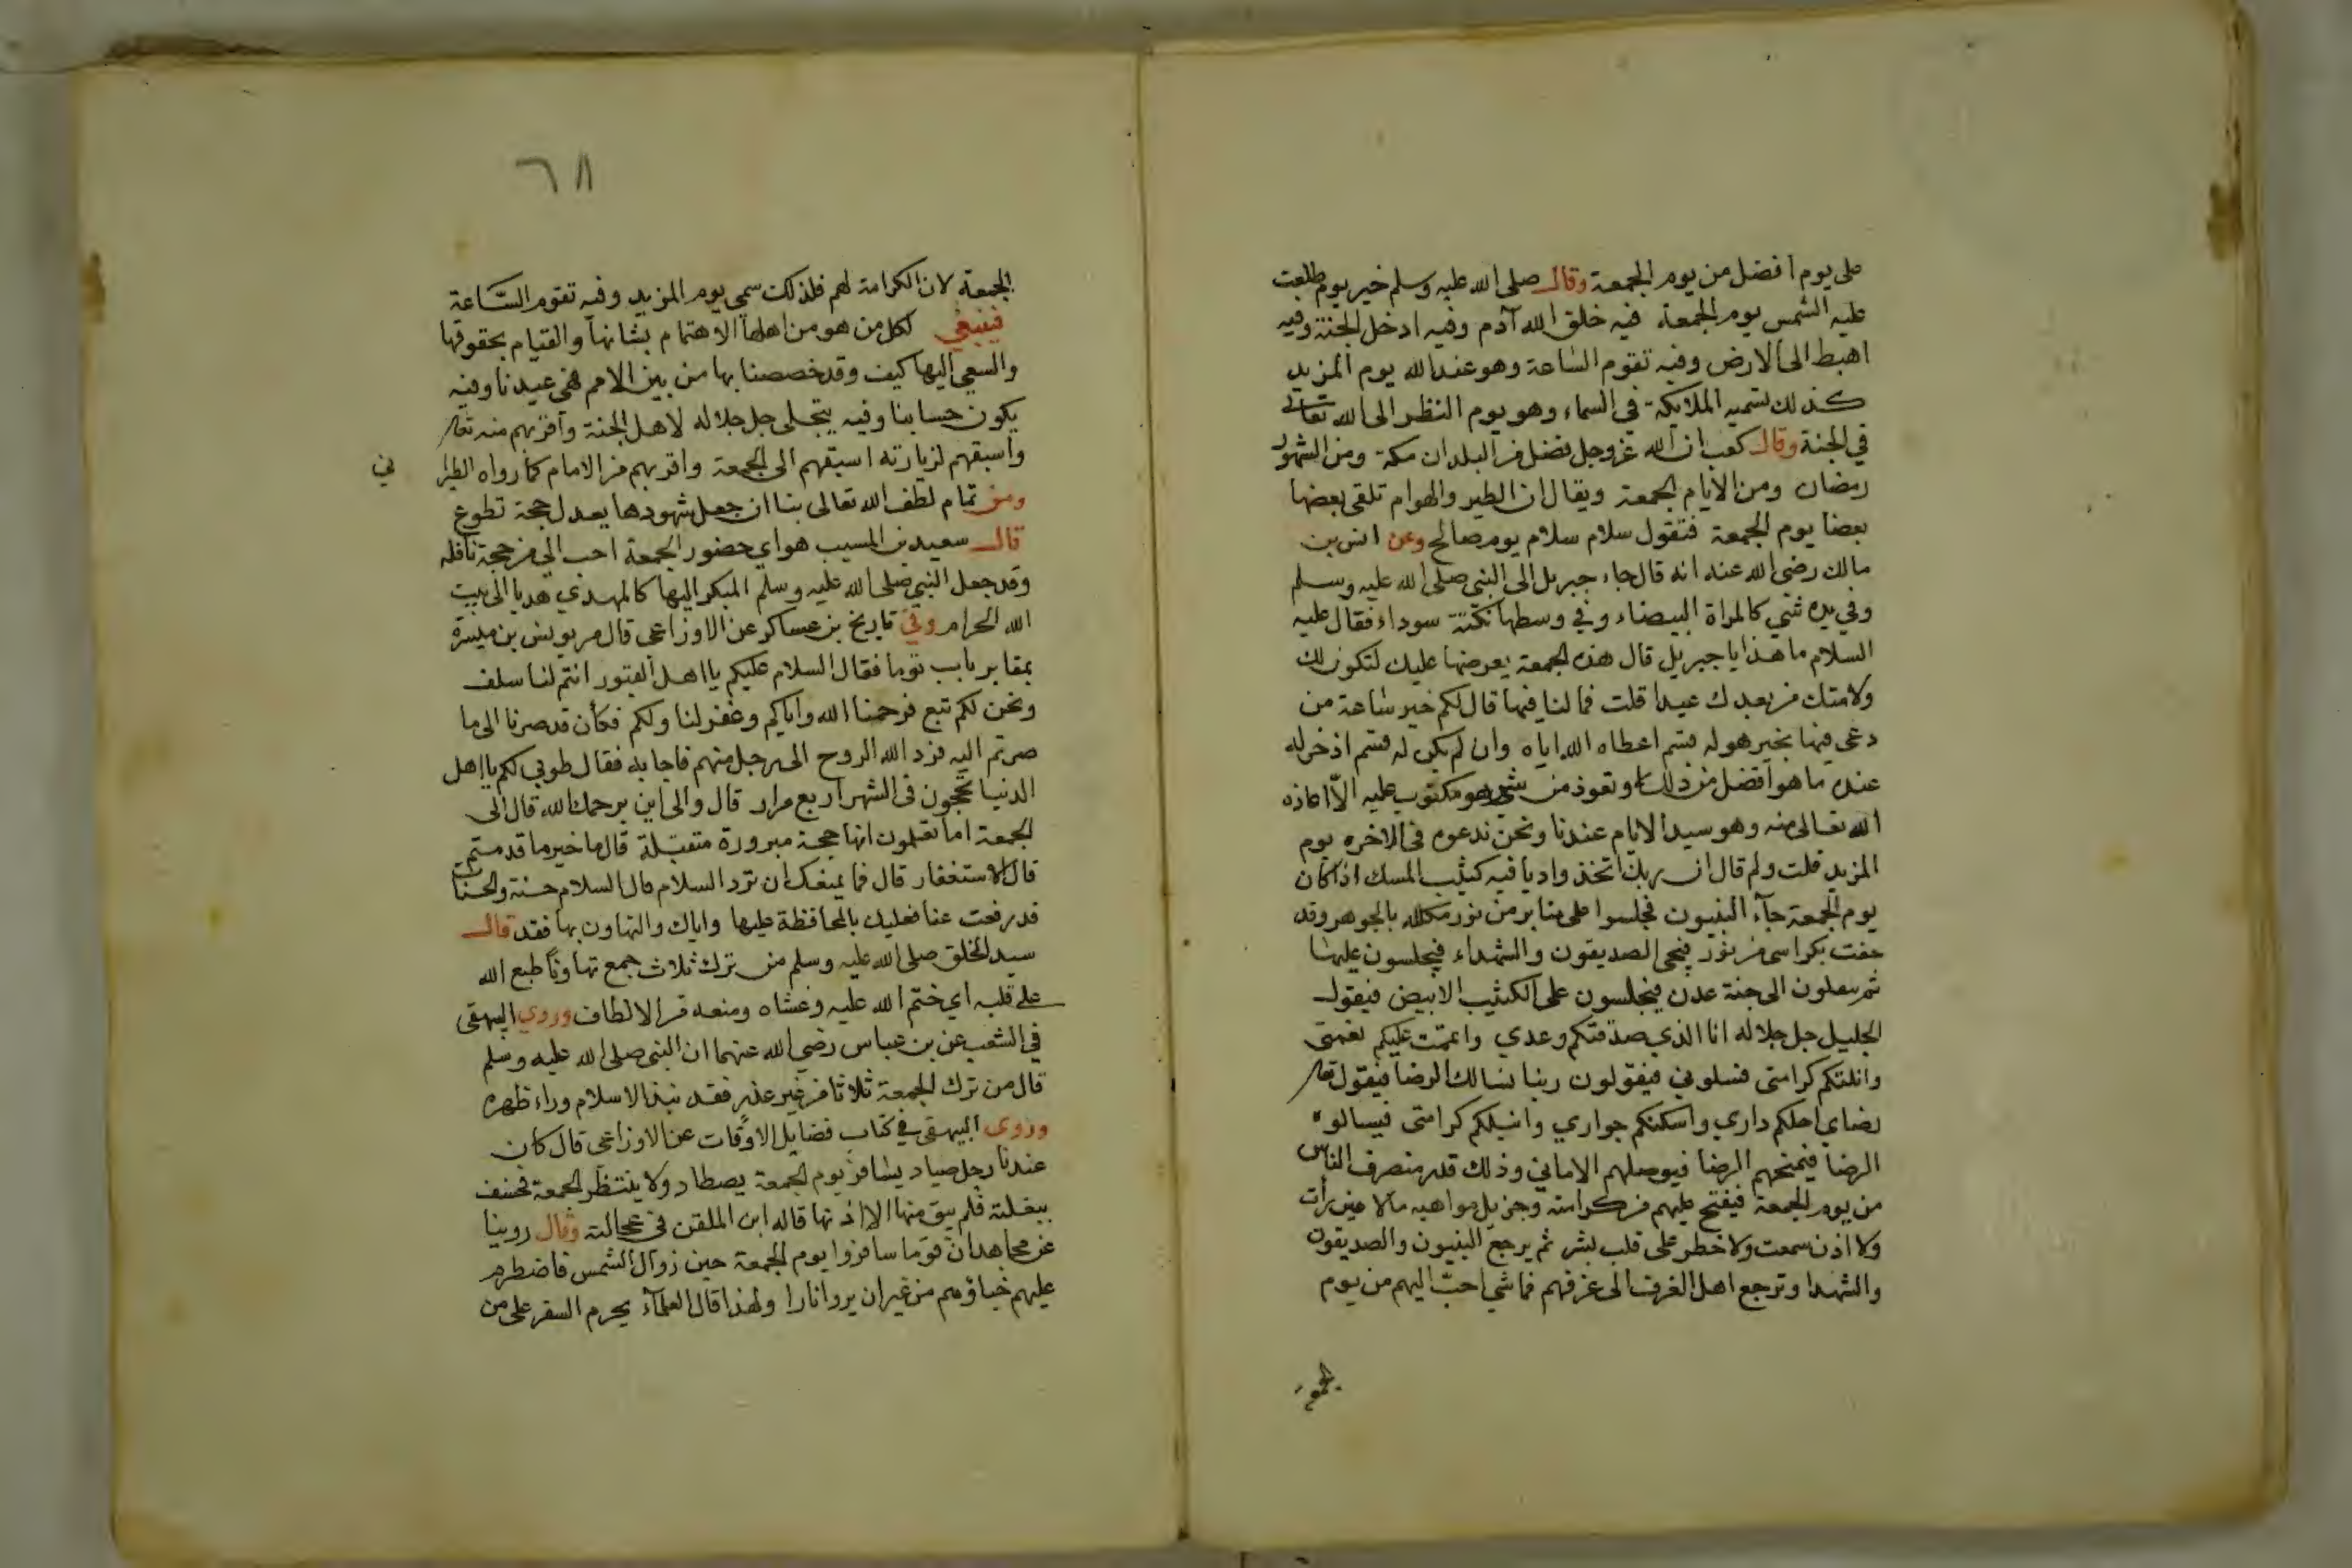 على يوم افضل من يوم الجمعة وقال صلى الله عليه وسلم خير يوم طلعت
عليه الشمس يوم الجمعة، فيه خلق الله آدم وفيه ادخل الجنة وفيه
اهبط الى الارض وفيه تقوم الساعة وهو عند الله يوم المزيد
كذلك تسميه الملايكة في السماء وهو يوم النظر الى الله تعالى
في الجنة وقال كعب ان الله عز وجل فضل من البلدان مكة ومن الشهور
رمضان ومن الايام الجمعة ويقال ان الطير والهوام تلقى بعضها
بعضا يوم الجمعة فتقول سلام سلام يوم صالح وعن انس بن
مالك رضي الله عنه انه قال جاء جبريل الى النبي صلى الله عليه وسلم
وفي يده شي كالمراة البيضاء وفي وسطها نكتة سوداء فقال عليه
السلام ما هذا يا جبريل قال هذه الجمعة يعرضها عليك لتكون لك
ولامتك من بعدك عيدا قلت فما لنا فيها قال لكم خير ساعة من
دعى فيها بخير هو له قسم اعطاه الله اياه وان لم يكن له قسم اذخر له
عنده ما هو افضل من ذلك او تعوذ من شر هو مكتوب عليه الا اعاذه
الله تعالى منه وهو سيد الايام عندنا ونحن ندعوه في الاخره يوم
المزيد قلت ولم قال ان ربك اتخذ واديا فيه كثيب المسك اذا كان
يوم الجمعة جآء النبيون فجلسوا على منابر من نور مكلله بالجوهر وقد
حفت بكراسي من نور فيجى الصديقون والشهداء فيجلسون عليها
ثم ينزلون الى جنة عدن فيجلسون على الكثيب الابيض فيقول
الجليل جل جلاله انا الذي صدقتكم وعدي واتممت عليكم نعمتى
وانلتكم كرامتى فسلوني فيقولون ربنا نسالك الرضا فيقول تعالى
رضاي احلكم داري واسكنكم جواري وانيلكم كرامتى فيسالوه
الرضا فيمنحهم الرضا فيوصلهم الاماني وذلك قدر منصرف الناس
من يوم الجمعة فيفتح عليهم من كرامته وجزيل مواهبه مالا عين رأت
ولا اذن سمعت ولا خطر على قلب بشر ثم يرجع النبيون والصديقون
والشهدا وترجع اهل الغرف الى غرفهم فما شي احب اليهم من يوم
الجمعة
٦٨
الجمعة لان الكرامة لهم فلذلك سمى يوم المزيد وفيه تقوم السّاعة
فينبغي لكل من هو من اهلها الاهتمام بشانها والقيام بحقوقها
والسعي اليها كيف وقد خصصنا بها من بين الامم فهى عيدنا وفيه
يكون حسابنا وفيه يتجلى جل جلاله لاهل الجنة واقربهم منه تعالى
واسبقهم لزيارته اسبقهم الى الجمعة واقربهم من الامام كما رواه الطبرا
ني
ومن تمام لطف الله تعالى بنا ان جعل شهودها يعدل حجة تطوع
قال سعيد بن المسيب هو اي حضور الجمعة احب الي من حجة نافله
وقد جعل النبي صلى الله عليه وسلم المبكر اليها كالمهدي هديا الى بيت
الله الحرام وفي تاريخ بن عساكر عن الاوزاعى قال مر يونس بن ميسرة
بمقابر باب توما فقال السلام عليكم يا اهل القبور انتم لنا سلف
ونحن لكم تبع فرحمنا الله واياكم وغفر لنا ولكم فكأن قد صرنا الى ما
صرتم اليه فرد الله الروح الى رجل منهم فاجابه فقال طوبي لكم يا اهل
الدنيا تحجون في الشهر اربع مرار قال والى اين يرحمك الله قال الى
الجمعة اما تعلمون انها حجة مبرورة متقبلة قال ما خير ما قدمتم
قال الاستغفار قال فما يمنعك ان ترد السلام قال السلام حسنة والحسنات
قد رفعت عنا فعليك بالمحافظة عليها واياك والتهاون بها فقد قال
سيد الخلق صلى الله عليه وسلم من ترك ثلاث جمع تهاونا طبع الله
على قلبه اي ختم الله عليه وغشاه ومنعه من الالطاف وروي البيهقى
في الشعب عن بن عباس رضي الله عنهما ان النبي صلى الله عليه وسلم
قال من ترك الجمعة ثلاثا من غير عذر فقد نبذ الاسلام وراء ظهره
وروى البيهقى في كتاب فضايل الاوقات عن الاوزاعى قال كان
عندنا رجل صياد يسافر يوم الجمعة يصطاد ولا ينتظر الجمعة فخسف
ببغلته فلم يبق منها الا اذنها قاله ابن الملقن في عجالته وقال روينا
عن مجاهد ان قوما سافروا يوم الجمعة حين زوال الشمس فاضطرم
عليهم خباؤهم من غير ان يروا نارا ولهذا قال العلمآء يحرم السفر على من